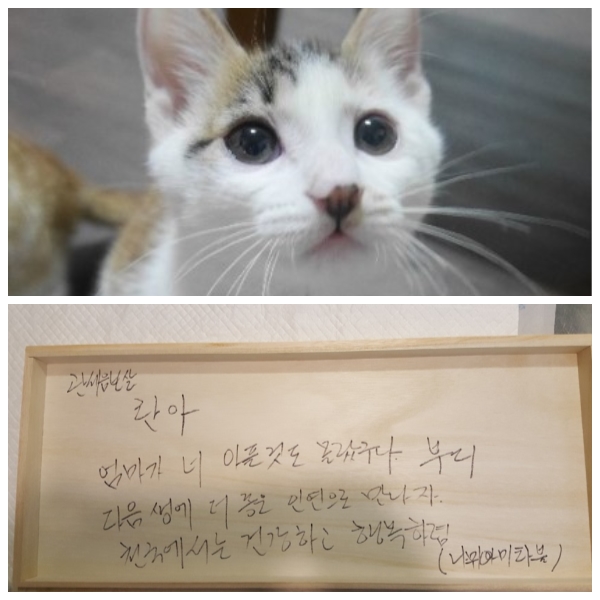 관세음보살
란아
엄마가 너 아픈것도 몰랐구나. 부디
다음 생에 더 좋은 인연으로 만나자.
천국에서는 건강하고 행복하렴
(나무아미타불)